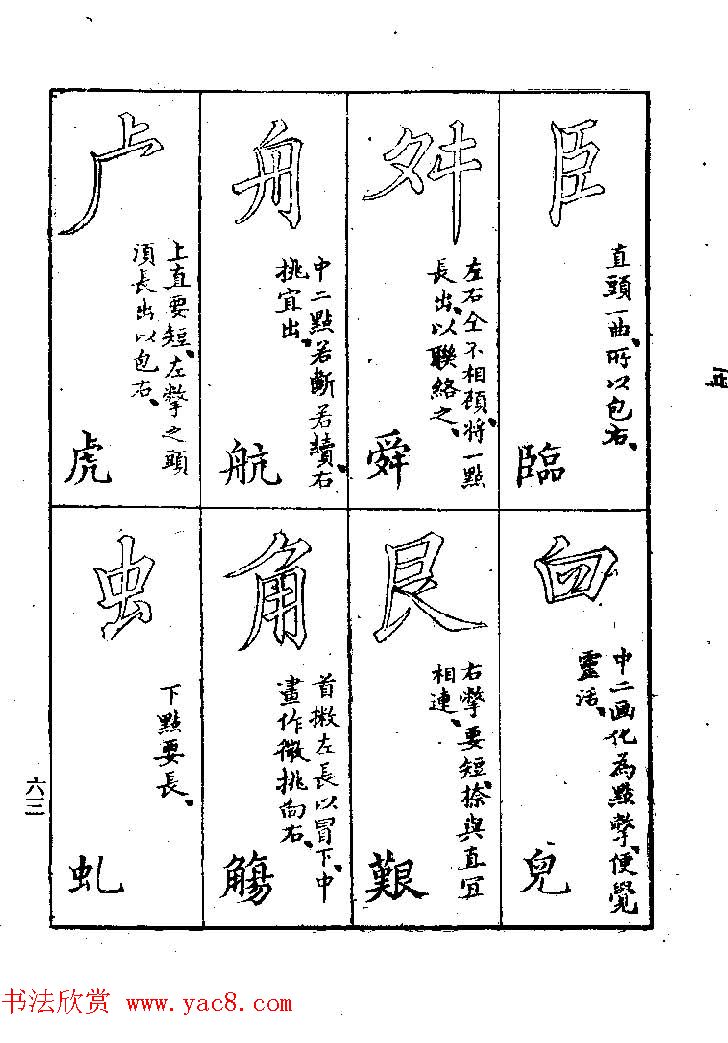 臣
直頭一曲、所以包右、
臨
舛
左右全不相顧、將一點
長出、以聯絡之、
舜
舟
中二點若斷若續、右
挑宜出、
航
虍
上直要短、左撇之頭
須長出以包右、
虎
臼
中二画化為點撇、便覺
靈活、
兒
艮
右撇要短、捺與直宜
相連、
艱
角
首撇左長以冒下、中
畫作微挑向右、
觴
虫
下點要長、
虬
六三
书法欣赏 www.yac8.com